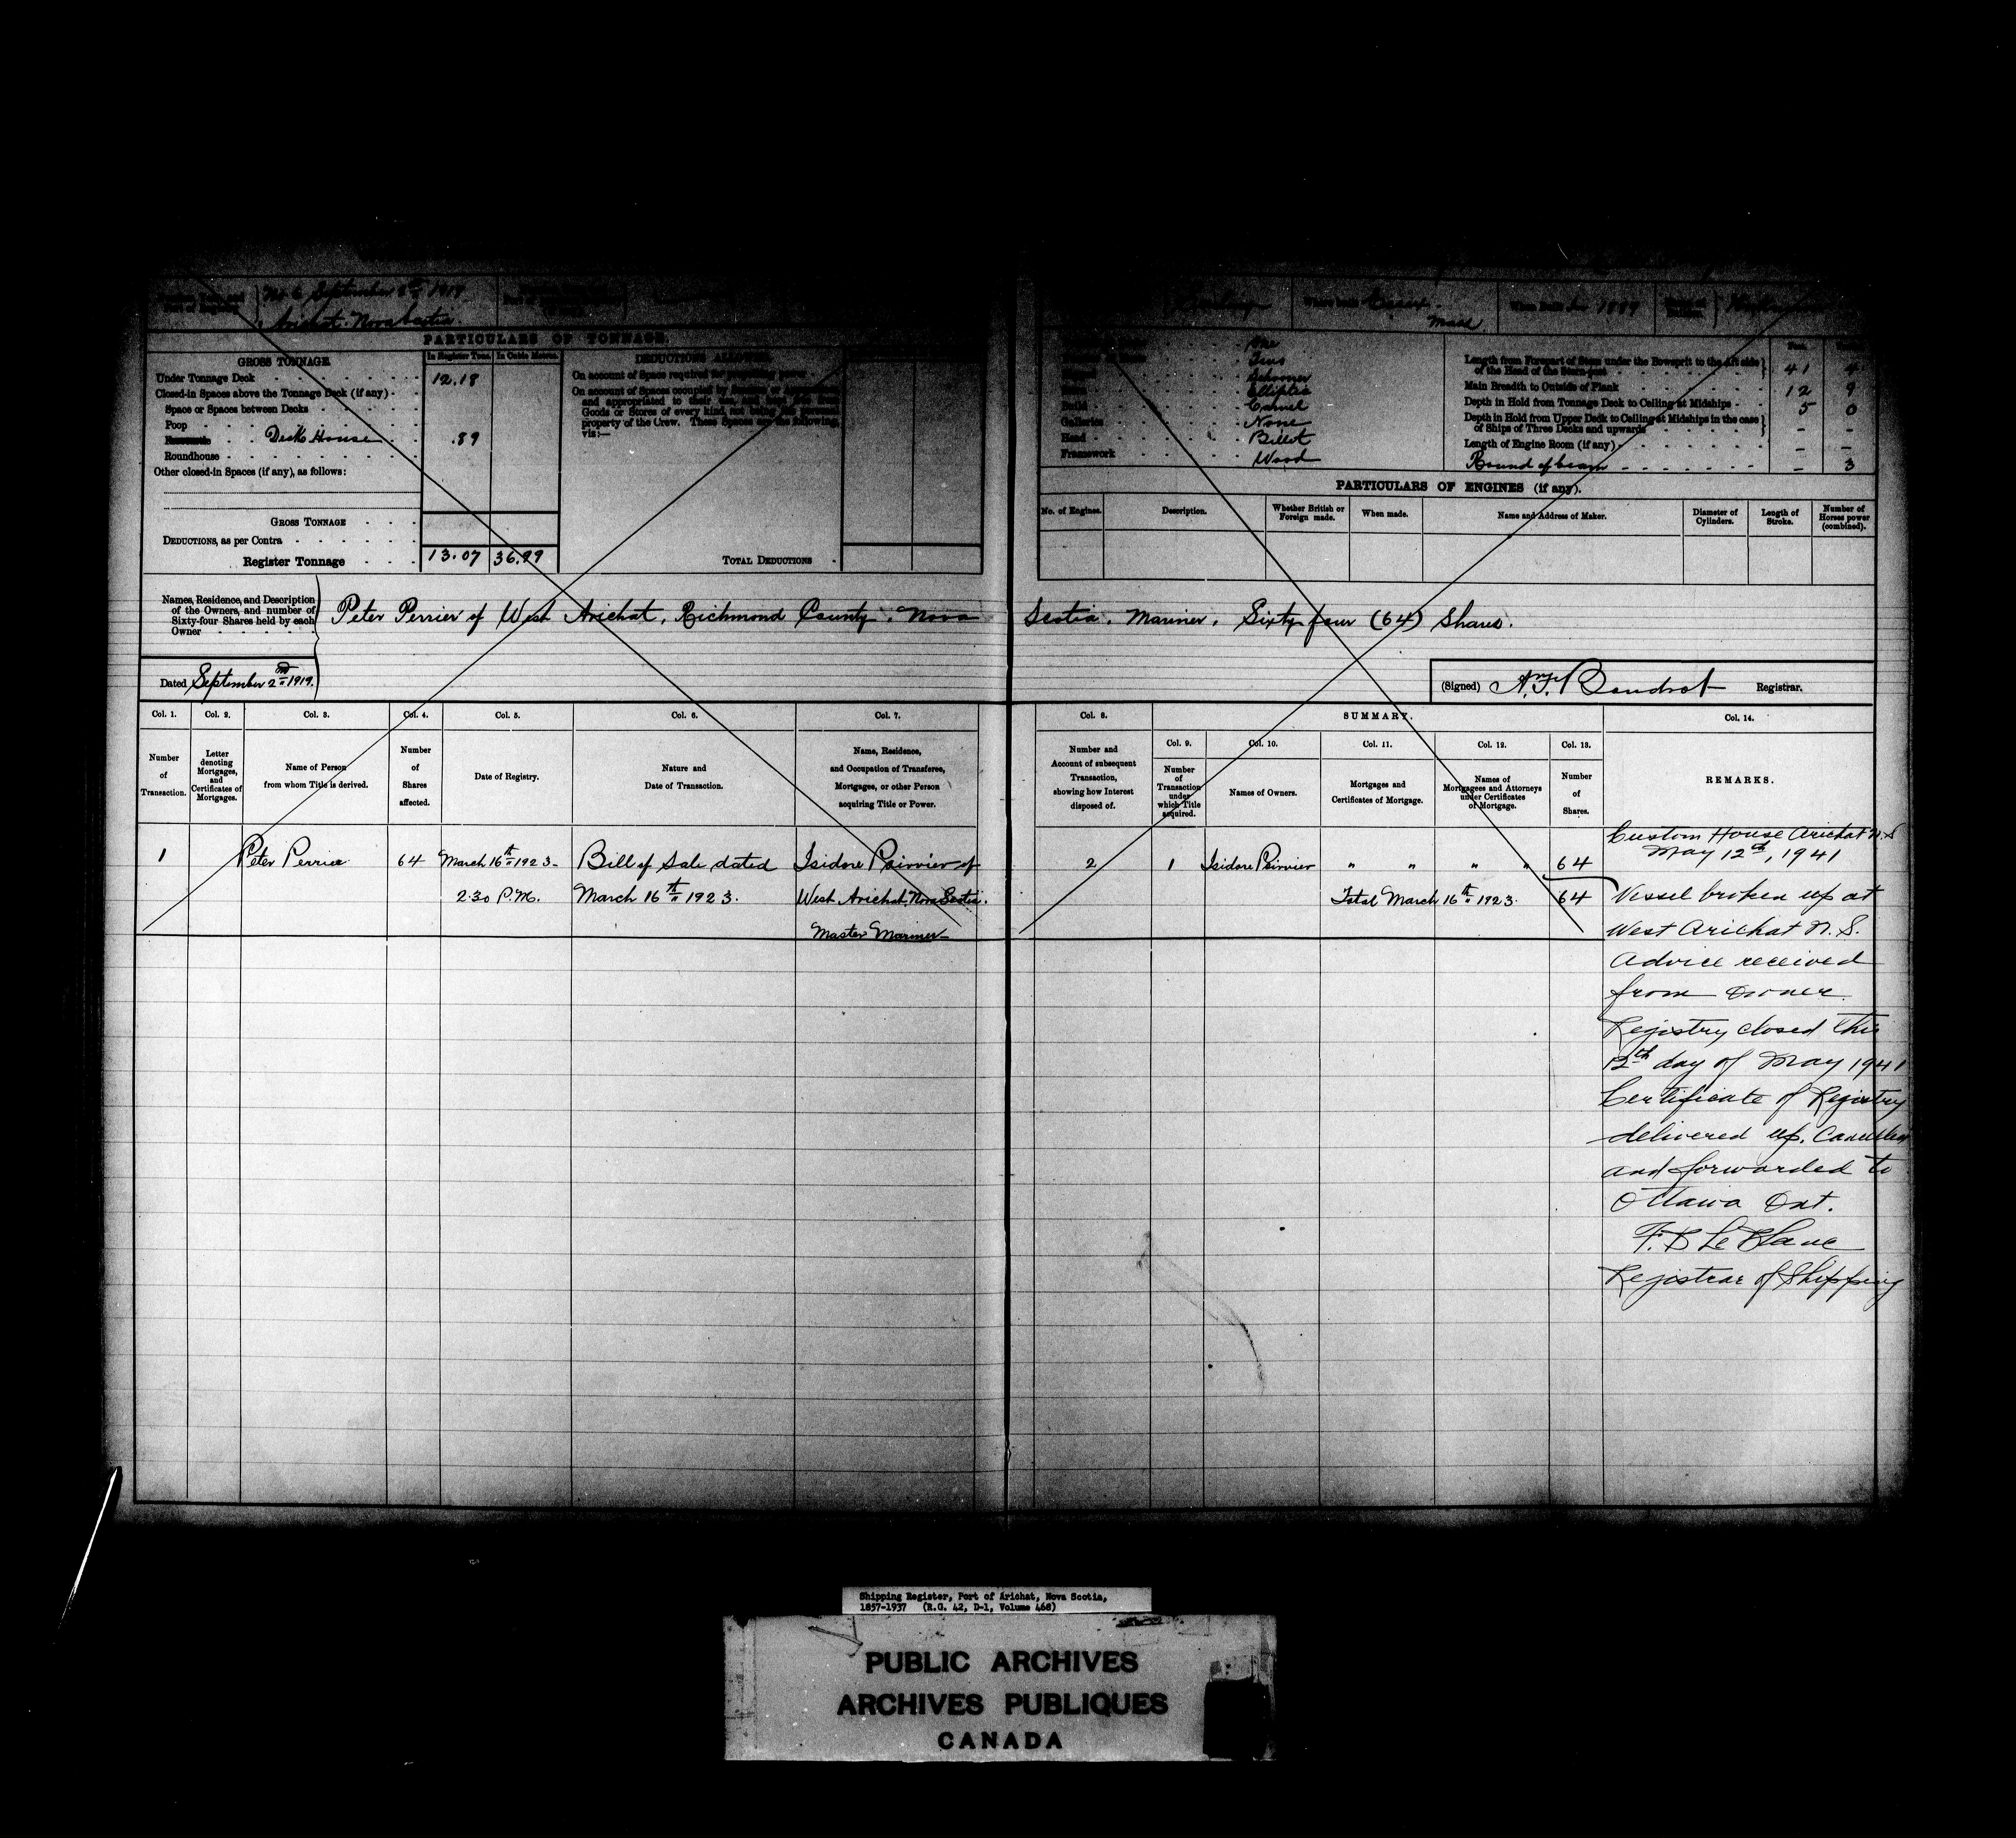 September 1919
Arichat. Nova Scotia
Where built Essex.
Mass
When built 1889
PARTICULARS OF TONNAGE.
GROSS TONNAGE.
In Register Tons.
In Cubic Metres.
DEDUCTIONS ALLOWED.
Under Tonnage Deck 12.18
Closed-in Spaces above the Tonnage Deck (if any)
Space or Spaces between Decks
Poop
Deck House .89
Roundhouse
Other closed-in Spaces (if any), as follows:
GROSS TONNAGE
DEDUCTIONS, as per Contra
Register Tonnage 13.07 36.99
On account of Space required for propelling power
On account of Spaces occupied by Seamen or Apprentices,
and appropriated to their use, and kept free from
Goods or Stores of every kind, not being the personal
property of the Crew. These Spaces are the following,
viz:—
TOTAL DEDUCTIONS
One
Two
Schooner
Elliptic
Build Carvel
Galleries None
Head Billet
Framework Wood
Length from Forepart of Stem under the Bowsprit to the Aft side
of the Head of the Stern-post 41 4
Main Breadth to Outside of Plank 12 9
Depth in Hold from Tonnage Deck to Ceiling at Midships 5 0
Depth in Hold from Upper Deck to Ceiling at Midships in the case
of Ships of Three Decks and upwards - -
Length of Engine Room (if any) - -
Round of beam - 3
PARTICULARS OF ENGINES (if any).
No. of Engines.
Description.
Whether British or
Foreign made.
When made.
Name and Address of Maker.
Diameter of
Cylinders.
Length of
Stroke.
Number of
Horses power
(combined).
Names, Residence, and Description
of the Owners, and number of
Sixty-four Shares held by each
Owner
Peter Perrier of West Arichat, Richmond County, Nova Scotia, Mariner, Sixty four (64) Shares.
Dated September 2nd 1919.
(Signed) Registrar.
Col. 1.
Number
of
Transaction.
Col. 2.
Letter
denoting
Mortgages,
and
Certificates of
Mortgages.
Col. 3.
Name of Person
from whom Title is derived.
Col. 4.
Number
of
Shares
affected.
Col. 5.
Date of Registry.
Col. 6.
Nature and
Date of Transaction.
Col. 7.
Name, Residence,
and Occupation of Transferee,
Mortgagee, or other Person
acquiring Title or Power.
Col. 8.
Number and
Account of subsequent
Transaction,
showing how Interest
disposed of.
SUMMARY.
Col. 9.
Number
of
Transaction
under
which Title
acquired.
Col. 10.
Names of Owners.
Col. 11.
Mortgages and
Certificates of Mortgage.
Col. 12.
Names of
Mortgagees and Attorneys
under Certificates
of Mortgage.
Col. 13.
Number
of
Shares.
Col. 14.
REMARKS.
1 Peter Perrier 64 March 16th 1923 Bill of Sale dated Isidore Poirrier of
2.30 P.M. March 16th 1923. West Arichat, Nova Scotia.
Master Mariner
2 1 Isidore Poirrier " " " " 64
Total March 16th 1923. 64
Custom House Arichat N.S
May 12th, 1941
Vessel broken up at
West Arichat N.S.
Advice received
from owner.
Registry closed this
12th day of May 1941
Certificate of Registry
delivered up. Cancelled
and forwarded to
Ottawa Ont.
F. B Le Blanc
Registrar of Shipping
Shipping Register, Port of Arichat, Nova Scotia,
1857-1937 (R.G. 42, D-1, Volume 468)
PUBLIC ARCHIVES
ARCHIVES PUBLIQUES
CANADA